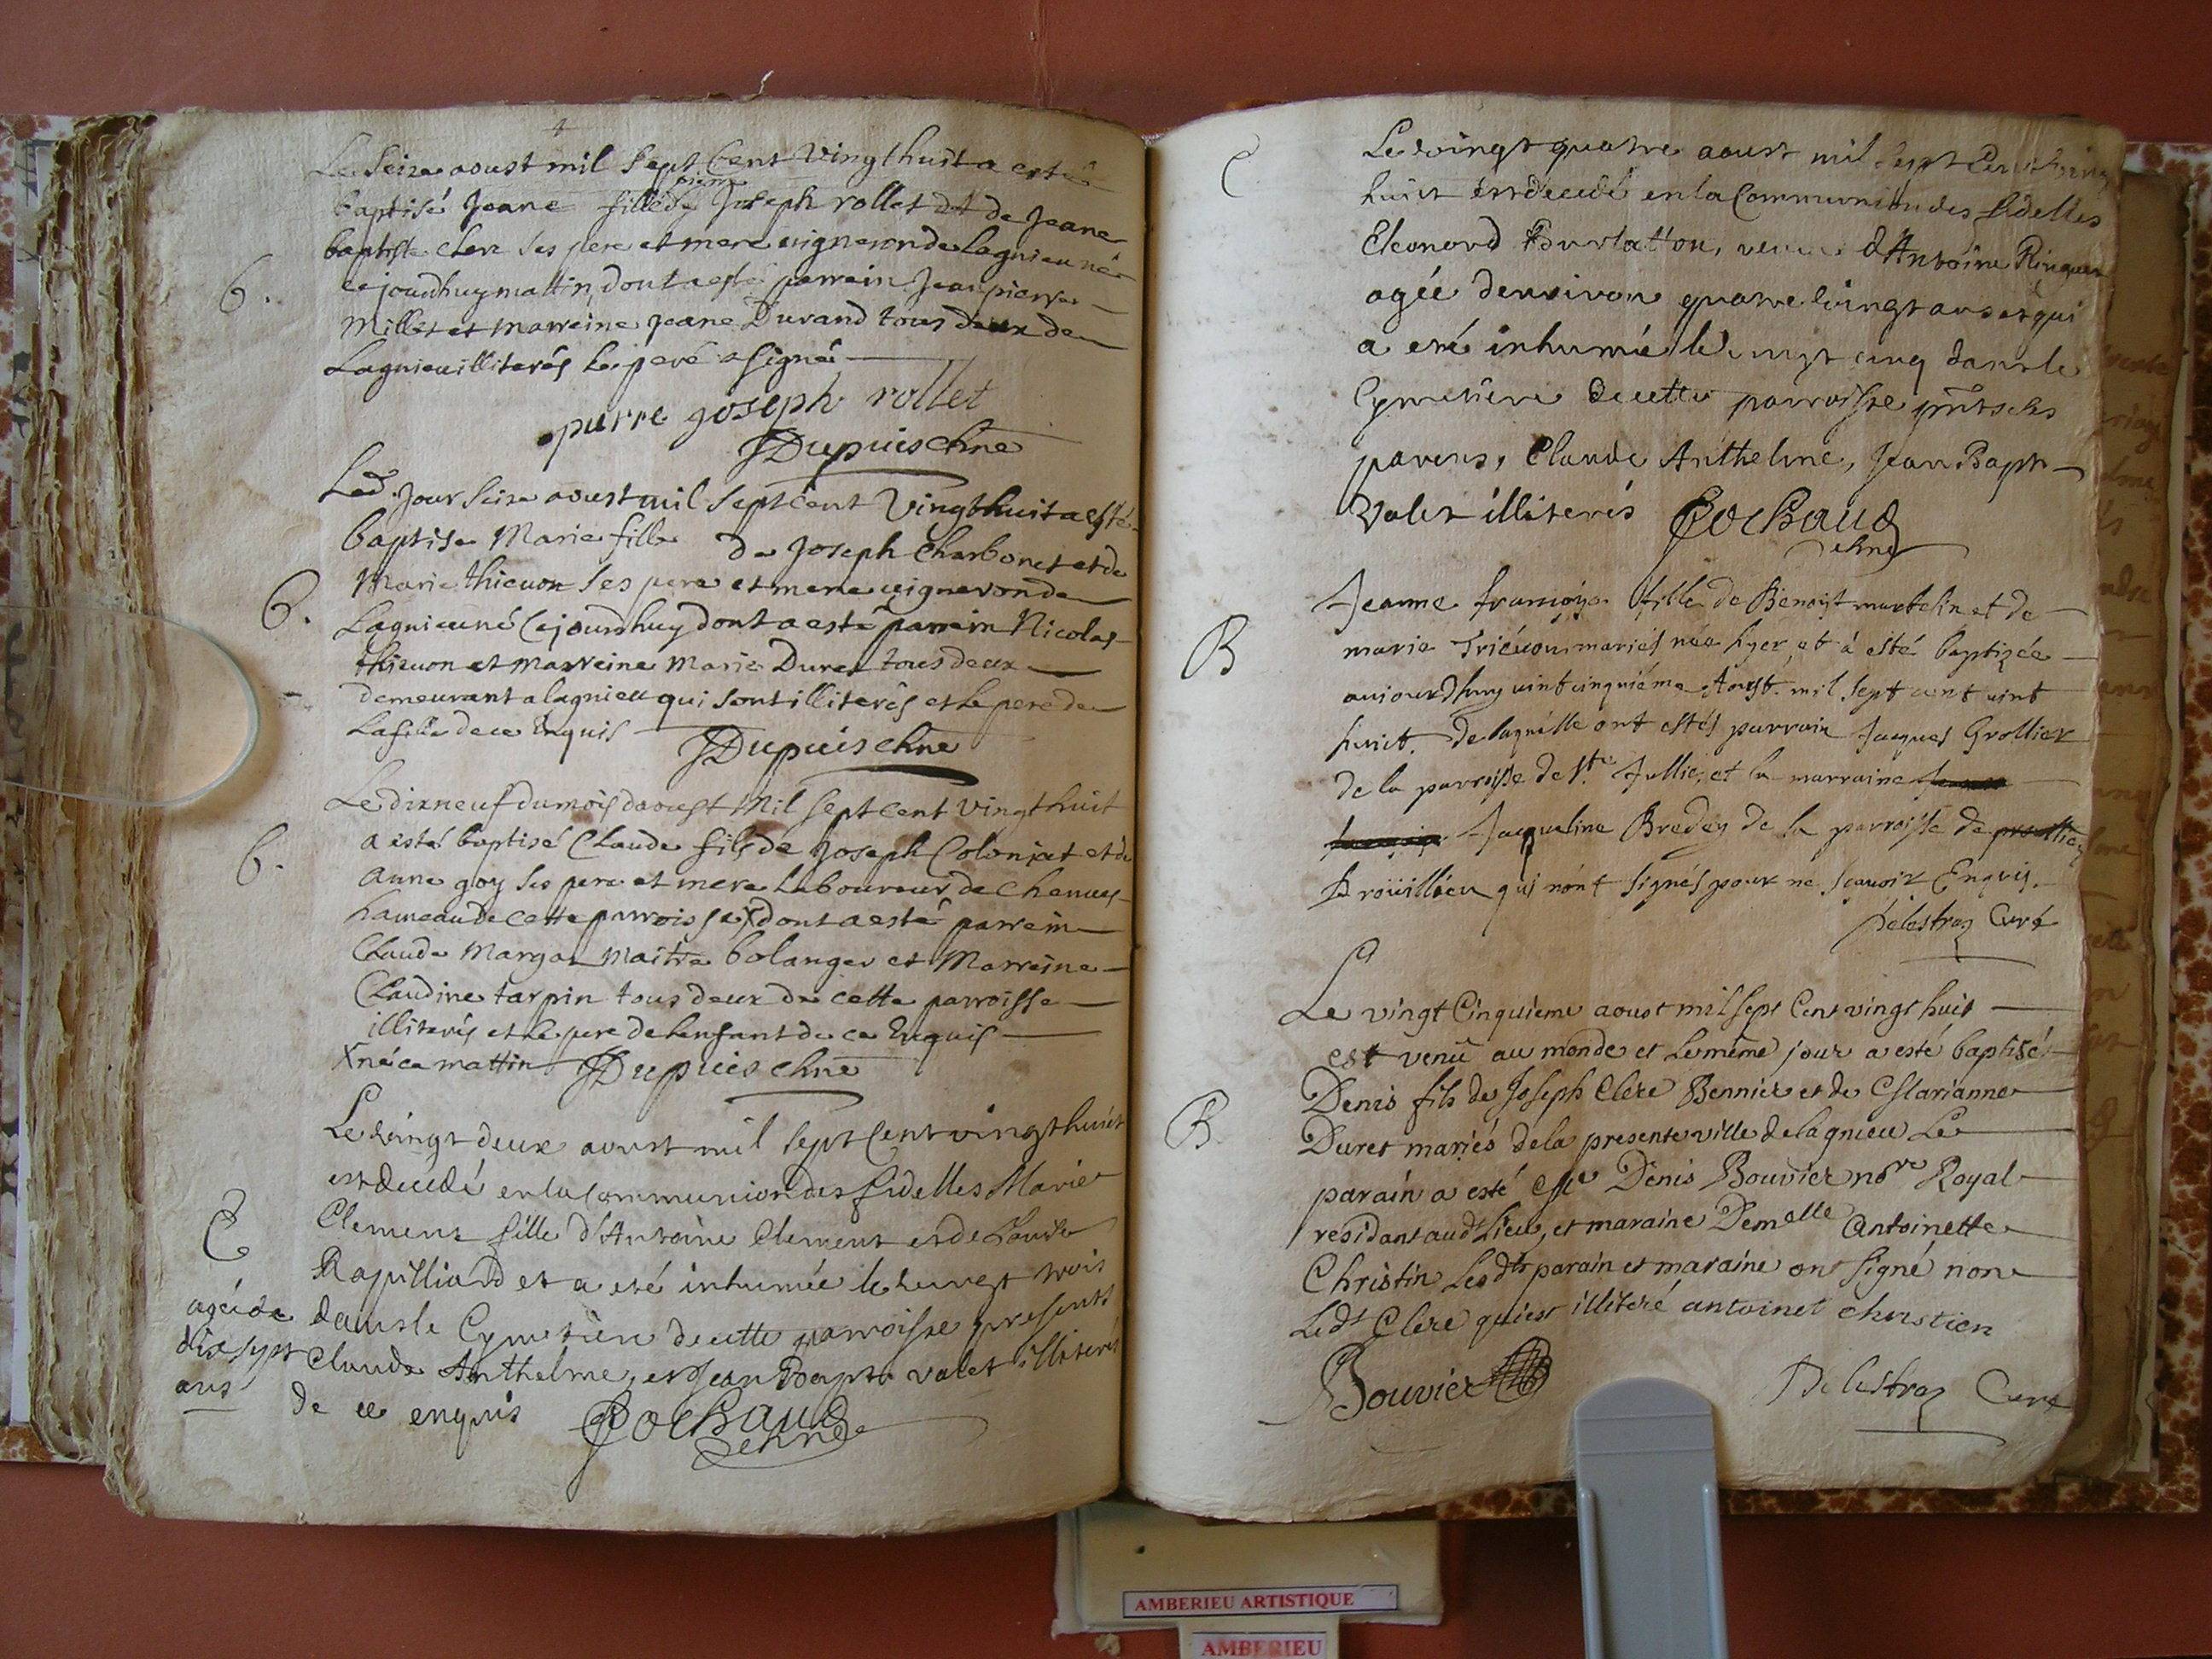 Le Seize aoust mil Sept Cent Vingt huit a esté
pierre
baptisé Jeane fille de Joseph rollet et de Jeane
baptiste clerc ses pere et mere vigneron de Lagnieu né
6.
cejourdhuy mattin, dont a esté parrein Jean pierre
Millet et marreine Jeane Durand tous deux de
Lagnieu illiterés le peré a signé
pierre joseph rollet
Dupuis chne
Led. Jour Seize aoust mil Sept cent Vingt huit a esté
baptise Marie fille de Joseph Charbonet et de
Marie thieuon ses pere et mere vigneron de
B.
Lagnieu né Cejourdhuy dont a esté parrein Nicolas
thieuon et Marreine Marie Duret tous deux
demeurant a lagnieu qui sont illiterés et le pere de
La fille de ce Enquis
Dupuis chne
Le dixneuf du mois daoust Mil Sept cent Vingt huit
6.
a esté baptisé Claude fils de Joseph Coloniat et de
anne goy ses pere et mere Laboureur de
hameau de cette parroisse X dont a esté parrein
Claude Margar Maitre bolanger et Marreine
Claudine tarpin tous deux de cette parroisse
illiterés et le pere de lenfant de ce Enquis
X né ce mattin Dupuis chne
Le vingt deux aoust mil sept Cent vingt huict
est decedé en la Communion des fidelles Marie
C
Clement fille d'Antoine Clement et de
Rapilliard et a esté inhumée le vingt trois
agée de
dix sept
ans
dans le Cymetiere de cette parroisse presents
Claude Anthelme, et Jean Bapte valet illiterés
de ce enquis Cochaud
chne
C
Le vingt quatre aoust mil Sept Cent Vingt
huict est decedé en la Communion des fidelles
Eleonord Burlatton, veuve d'Antoine Ringuet
agée denviron quatre vingt ans et qui
a esté inhumée le vingt cinq dans le
Cymetiere de cette parroisse pnts ses
parens, Claude Anthelme, Jean Bapte
Valet illiterés Cochaud
chne
Jeanne françoise fille de Benoist martelin et de
B
marie Triévon mariés née hyer et à esté baptizée
aujourdhuy vint cinquiéme Aoust mil sept cent vint
huict. de laquelle ont estés parrain Jacques Grollier
de la parroisse de Ste Jullie, et la marraine
Jaqueline Bredey de la parroisse de
Broüilléeu qui nónt signés pour ne sçavoir Enquis.
Delestraz Curé
Le vingt Cinquieme aoust mil sept Cent vingt huit
est venu au monde et Le même jour a esté baptisé
Denis fils de Joseph Clerc Bennier et de Marianne
B.
Duret mariés de la presente ville de lagnieu Le
parain a esté Me Denis Bouvier nore Royal
residant aud Lieu, et maraine Demelle Antoinette
Christin Lesdts parain et maraine ont signé non
Ledt Clerc qui est illiteré antoinet christien
Bouvier Delestraz Curé
AMBERIEU ARTISTIQUE
AMBERIEU